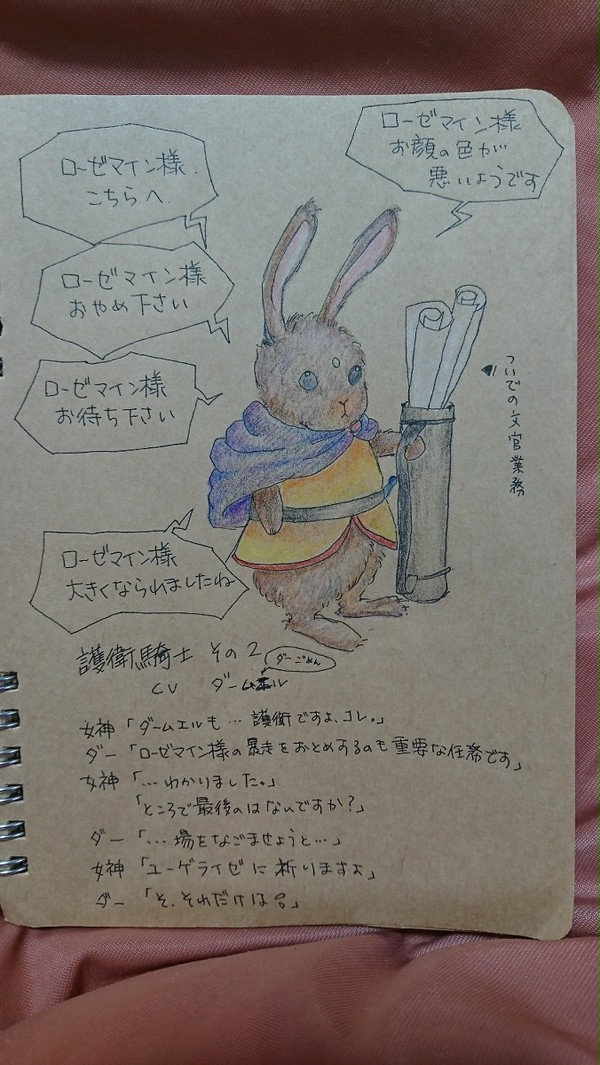 ローゼマイン様
こちらへ
ローゼマイン様
お顔の色が
悪いようです
ローゼマイン様
おやめ下さい
ローゼマイン様
お待ち下さい
ついでの文官業務
ローゼマイン様
大きくなられましたね
護衛騎士 その2
ダーごめん
CV ダームエル
女神「ダームエルも…護衛ですよ、コレ。」
ダー「ローゼマイン様の暴走をおとめするのも重要な任務です」
女神「…わかりました。」
「ところで最後のはなんですか?」
ダー「…場をなごませようと…」
女神「ユーゲライゼに祈りますよ」
ダー「そ、それだけは